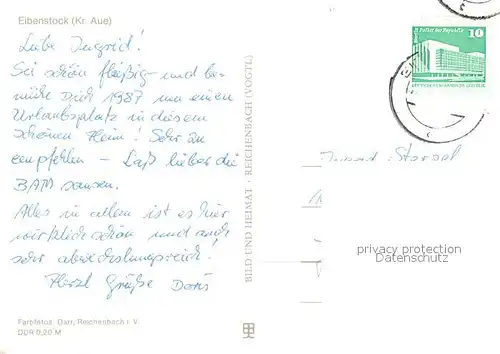 Eibenstock (Kr. Aue)
Liebe Ingrid!
Sei schön fleißig und be-
mühe Dich 1987 um einen
Urlaubsplatz in diesem
schönen Heim! Sehr zu
empfehlen – Laß lieber die
BAM sausen.
Alles in allem ist es hier
wirklich schön und auch
sehr abwechslungsreich!
Herzl Grüße Doris
Farbfotos: Darr, Reichenbach i. V.
DDR 0,20 M
BILD UND HEIMAT · REICHENBACH (VOGTL)
Palast der Republik
10
privacy protection
Datenschutz